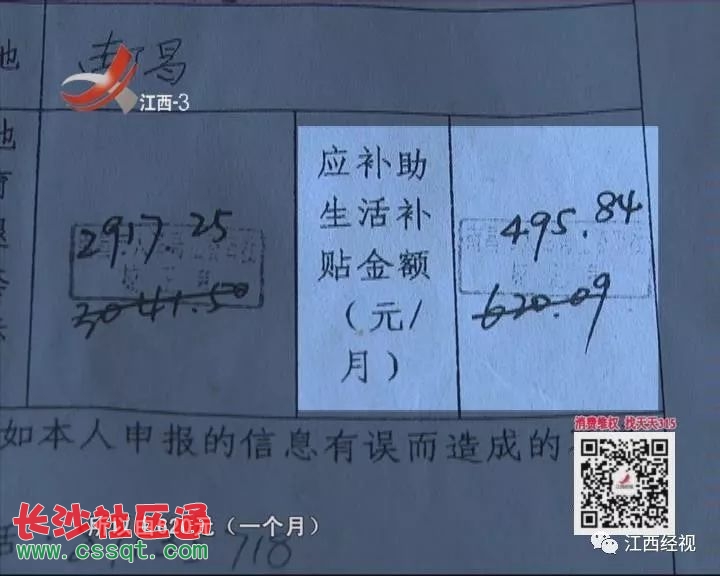 地
南昌
江西-3
地
2917.25
3041.50
应补助
生活补
贴金额
(元/
月)
495.84
620.09
如本人申报的信息有误而造成的
消费维权 找天天315
长沙社区通
www.cssqt.com
元(一个月)
710
江西经视